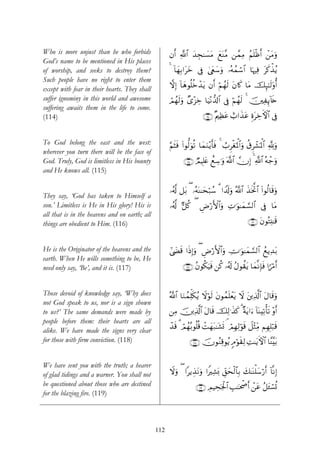 Who is more unjust than he who forbids
God's name to be mentioned in His places
of worship, and seeks to destroy them?
Such people have no right to enter them
except with fear in their hearts. They shall
suffer ignominy in this world and awesome
suffering awaits them in the life to come.
(114)
وَمَنْ أَظْلَمُ مِمَّن مَّنَعَ مَسَـٰجِدَ ٱللَّهِ أَن
يُذْكَرَ فِيهَا ٱسْمُهُۥ وَسَعَىٰ فِى خَرَابِهَآ ۚ
أُو۟لَـٰٓئِكَ مَا كَانَ لَهُمْ أَن يَدْخُلُوهَآ إِلَّا
خَآئِفِينَ ۚ لَهُمْ فِى ٱلدُّنْيَا خِزْىٌ وَلَهُمْ
فِى ٱلْـَٔاخِرَةِ عَذَابٌ عَظِيمٌ ﴿١١٤﴾
To God belong the east and the west:
wherever you turn there will be the face of
God. Truly, God is limitless in His bounty
and He knows all. (115)
وَلِلَّهِ ٱلْمَشْرِقُ وَٱلْمَغْرِبُ ۚ فَأَيْنَمَا تُوَلُّوا۟ فَثَمَّ
وَجْهُ ٱللَّهِ ۚ إِنَّ ٱللَّهَ وَٰسِعٌ عَلِيمٌ ﴿١١٥﴾
They say, 'God has taken to Himself a
son.' Limitless is He in His glory! His is
all that is in the heavens and on earth; all
things are obedient to Him. (116)
وَقَالُوا۟ ٱتَّخَذَ ٱللَّهُ وَلَدًا ۗ سُبْحَـٰنَهُۥ ۖ بَل لَّهُۥ
مَا فِى ٱلسَّمَـٰوَٰتِ وَٱلْأَرْضِ ۖ كُلٌّ لَّهُۥ
قَـٰنِتُونَ ﴿١١٦﴾
He is the Originator of the heavens and the
earth. When He wills something to be, He
need only say, 'Be', and it is. (117)
بَدِيعُ ٱلسَّمَـٰوَٰتِ وَٱلْأَرْضِ ۖ وَإِذَا قَضَىٰٓ
أَمْرًا فَإِنَّمَا يَقُولُ لَهُۥ كُن فَيَكُونُ ﴿١١٧﴾
Those devoid of knowledge say, 'Why does
not God speak to us, nor is a sign shown
to us?' The same demands were made by
people before them: their hearts are all
alike. We have made the signs very clear
for those with firm conviction. (118)
وَقَالَ ٱلَّذِينَ لَا يَعْلَمُونَ لَوْلَا يُكَلِّمُنَا ٱللَّهُ
أَوْ تَأْتِينَآ ءَايَةٌ ۗ كَذَٰلِكَ قَالَ ٱلَّذِينَ مِن
قَبْلِهِم مِّثْلَ قَوْلِهِمْ ۘ تَشَـٰبَهَتْ قُلُوبُهُمْ ۗ قَدْ
بَيَّنَّا ٱلْـَٔايَـٰتِ لِقَوْمٍ يُوقِنُونَ ﴿١١٨﴾
We have sent you with the truth; a bearer
of glad tidings and a warner. You shall not
be questioned about those who are destined
for the blazing fire. (119)
إِنَّآ أَرْسَلْنَـٰكَ بِٱلْحَقِّ بَشِيرًا وَنَذِيرًا ۖ وَلَا
تُسْـَٔلُ عَنْ أَصْحَـٰبِ ٱلْجَحِيمِ ﴿١١٩﴾
112